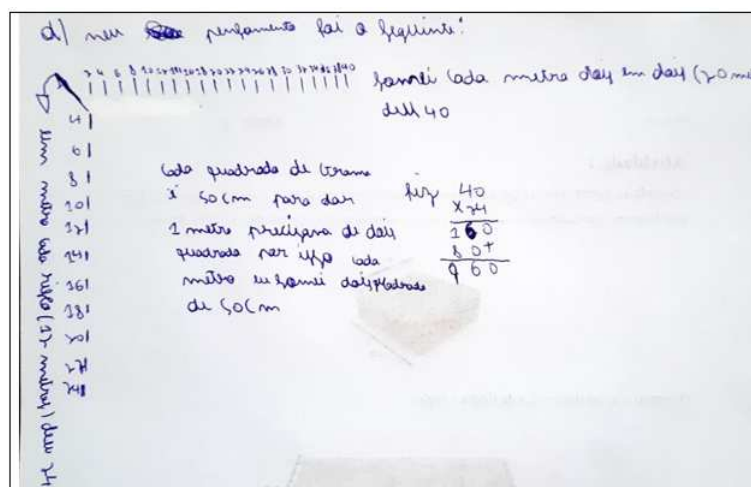 d) meu pensamento foi o seguinte:
2 4 6 8 10 12 14 16 18 20 22 24 26 28 30 32 34 36 38 40
somei cada metro dois em dois (20 me
deu 40
4
6
8
10
12
14
16
18
20
22
24
um metro cada risco (12 metros) deu 24
cada quadrado de grama
é 50cm para dar
1 metro precisava de dois
quadrado por isso cada
metro eu somei dois quadrado
de 50cm
fiz 40
x24
160
80+
960